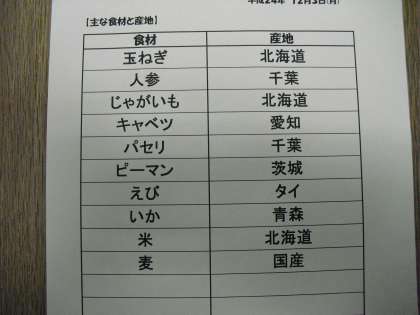 平成24年 12月3日(月)
【主な食材と産地】
食材 産地
玉ねぎ 北海道
人参 千葉
じゃがいも 北海道
キャベツ 愛知
パセリ 千葉
ピーマン 茨城
えび タイ
いか 青森
米 北海道
麦 国産